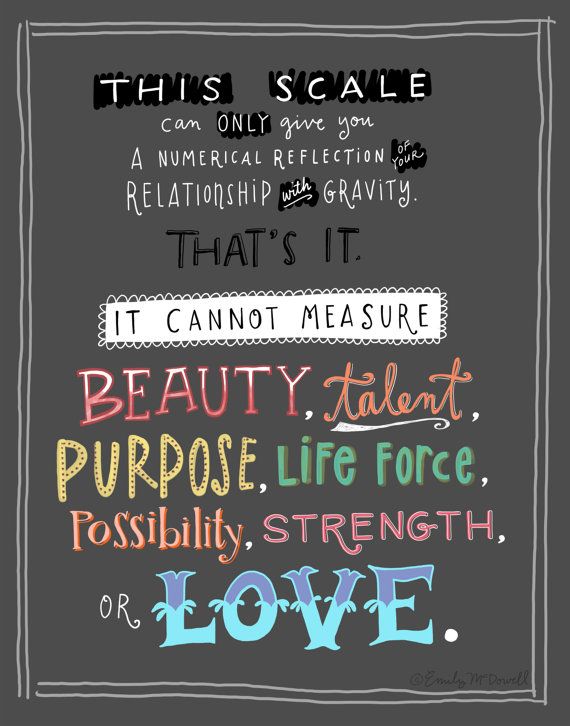 THIS SCALE
can ONLY give you
A NUMERICAL REFLECTION OF YOUR
RELATIONSHIP with GRAVITY.
THAT'S IT.
IT CANNOT MEASURE
BEAUTY, talent,
PURPOSE, LIFE FORCE,
POSSIBILITY, STRENGTH,
OR LOVE.
©Emily McDowell